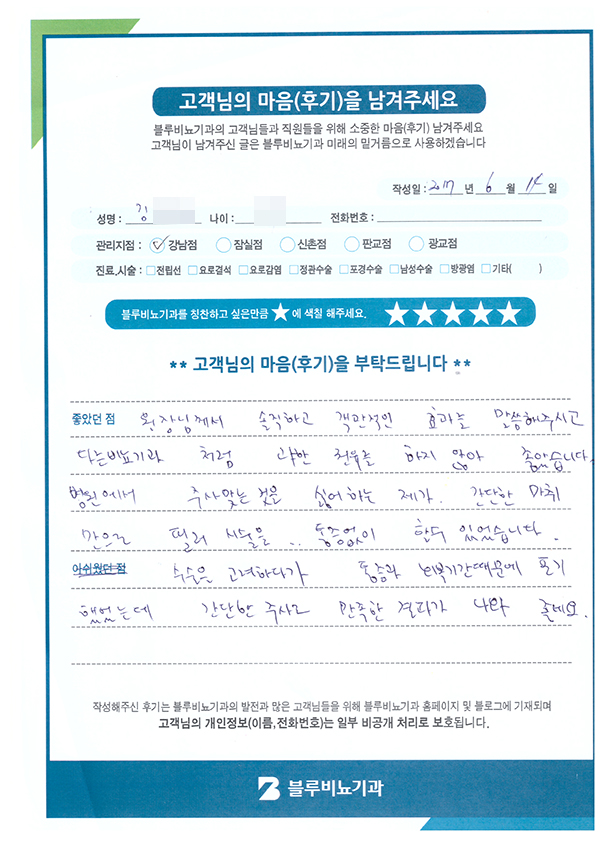 고객님의 마음(후기)을 남겨주세요
블루비뇨기과의 고객님들과 직원들을 위해 소중한 마음(후기) 남겨주세요
고객님이 남겨주신 글은 블루비뇨기과 미래의 밑거름으로 사용하겠습니다
작성일 : 2017 년 6 월 14 일
성명 : 김 나이 : 전화번호 :
관리지점 : 강남점 잠실점 신촌점 판교점 광교점
진료,시술 : 전립선 요로결석 요로감염 정관수술 포경수술 남성수술 방광염 기타( )
블루비뇨기과를 칭찬하고 싶은만큼 ★에 색칠 해주세요. ★★★★★
** 고객님의 마음(후기)을 부탁드립니다 **
좋았던 점 원장님께서 솔직하고 객관적인 효과를 말씀해주시고
다른비뇨기과 처럼 과한 권유를 하지 않아 좋았습니다.
병원에서 주사맞는 것을 싫어하는 제가. 간단한 마취
만으로 필러 시술을 .. 통증없이 할수 있었습니다.
아쉬웠던 점 수술은 고려하다가 통증과 회복기간때문에 포기
했었는데 간단한 주사로 만족한 결과가 나와
작성해주신 후기는 블루비뇨기과의 발전과 많은 고객님들을 위해 블루비뇨기과 홈페이지 및 블로그에 기재되며
고객님의 개인정보(이름,전화번호)는 일부 비공개 처리로 보호됩니다.
블루비뇨기과